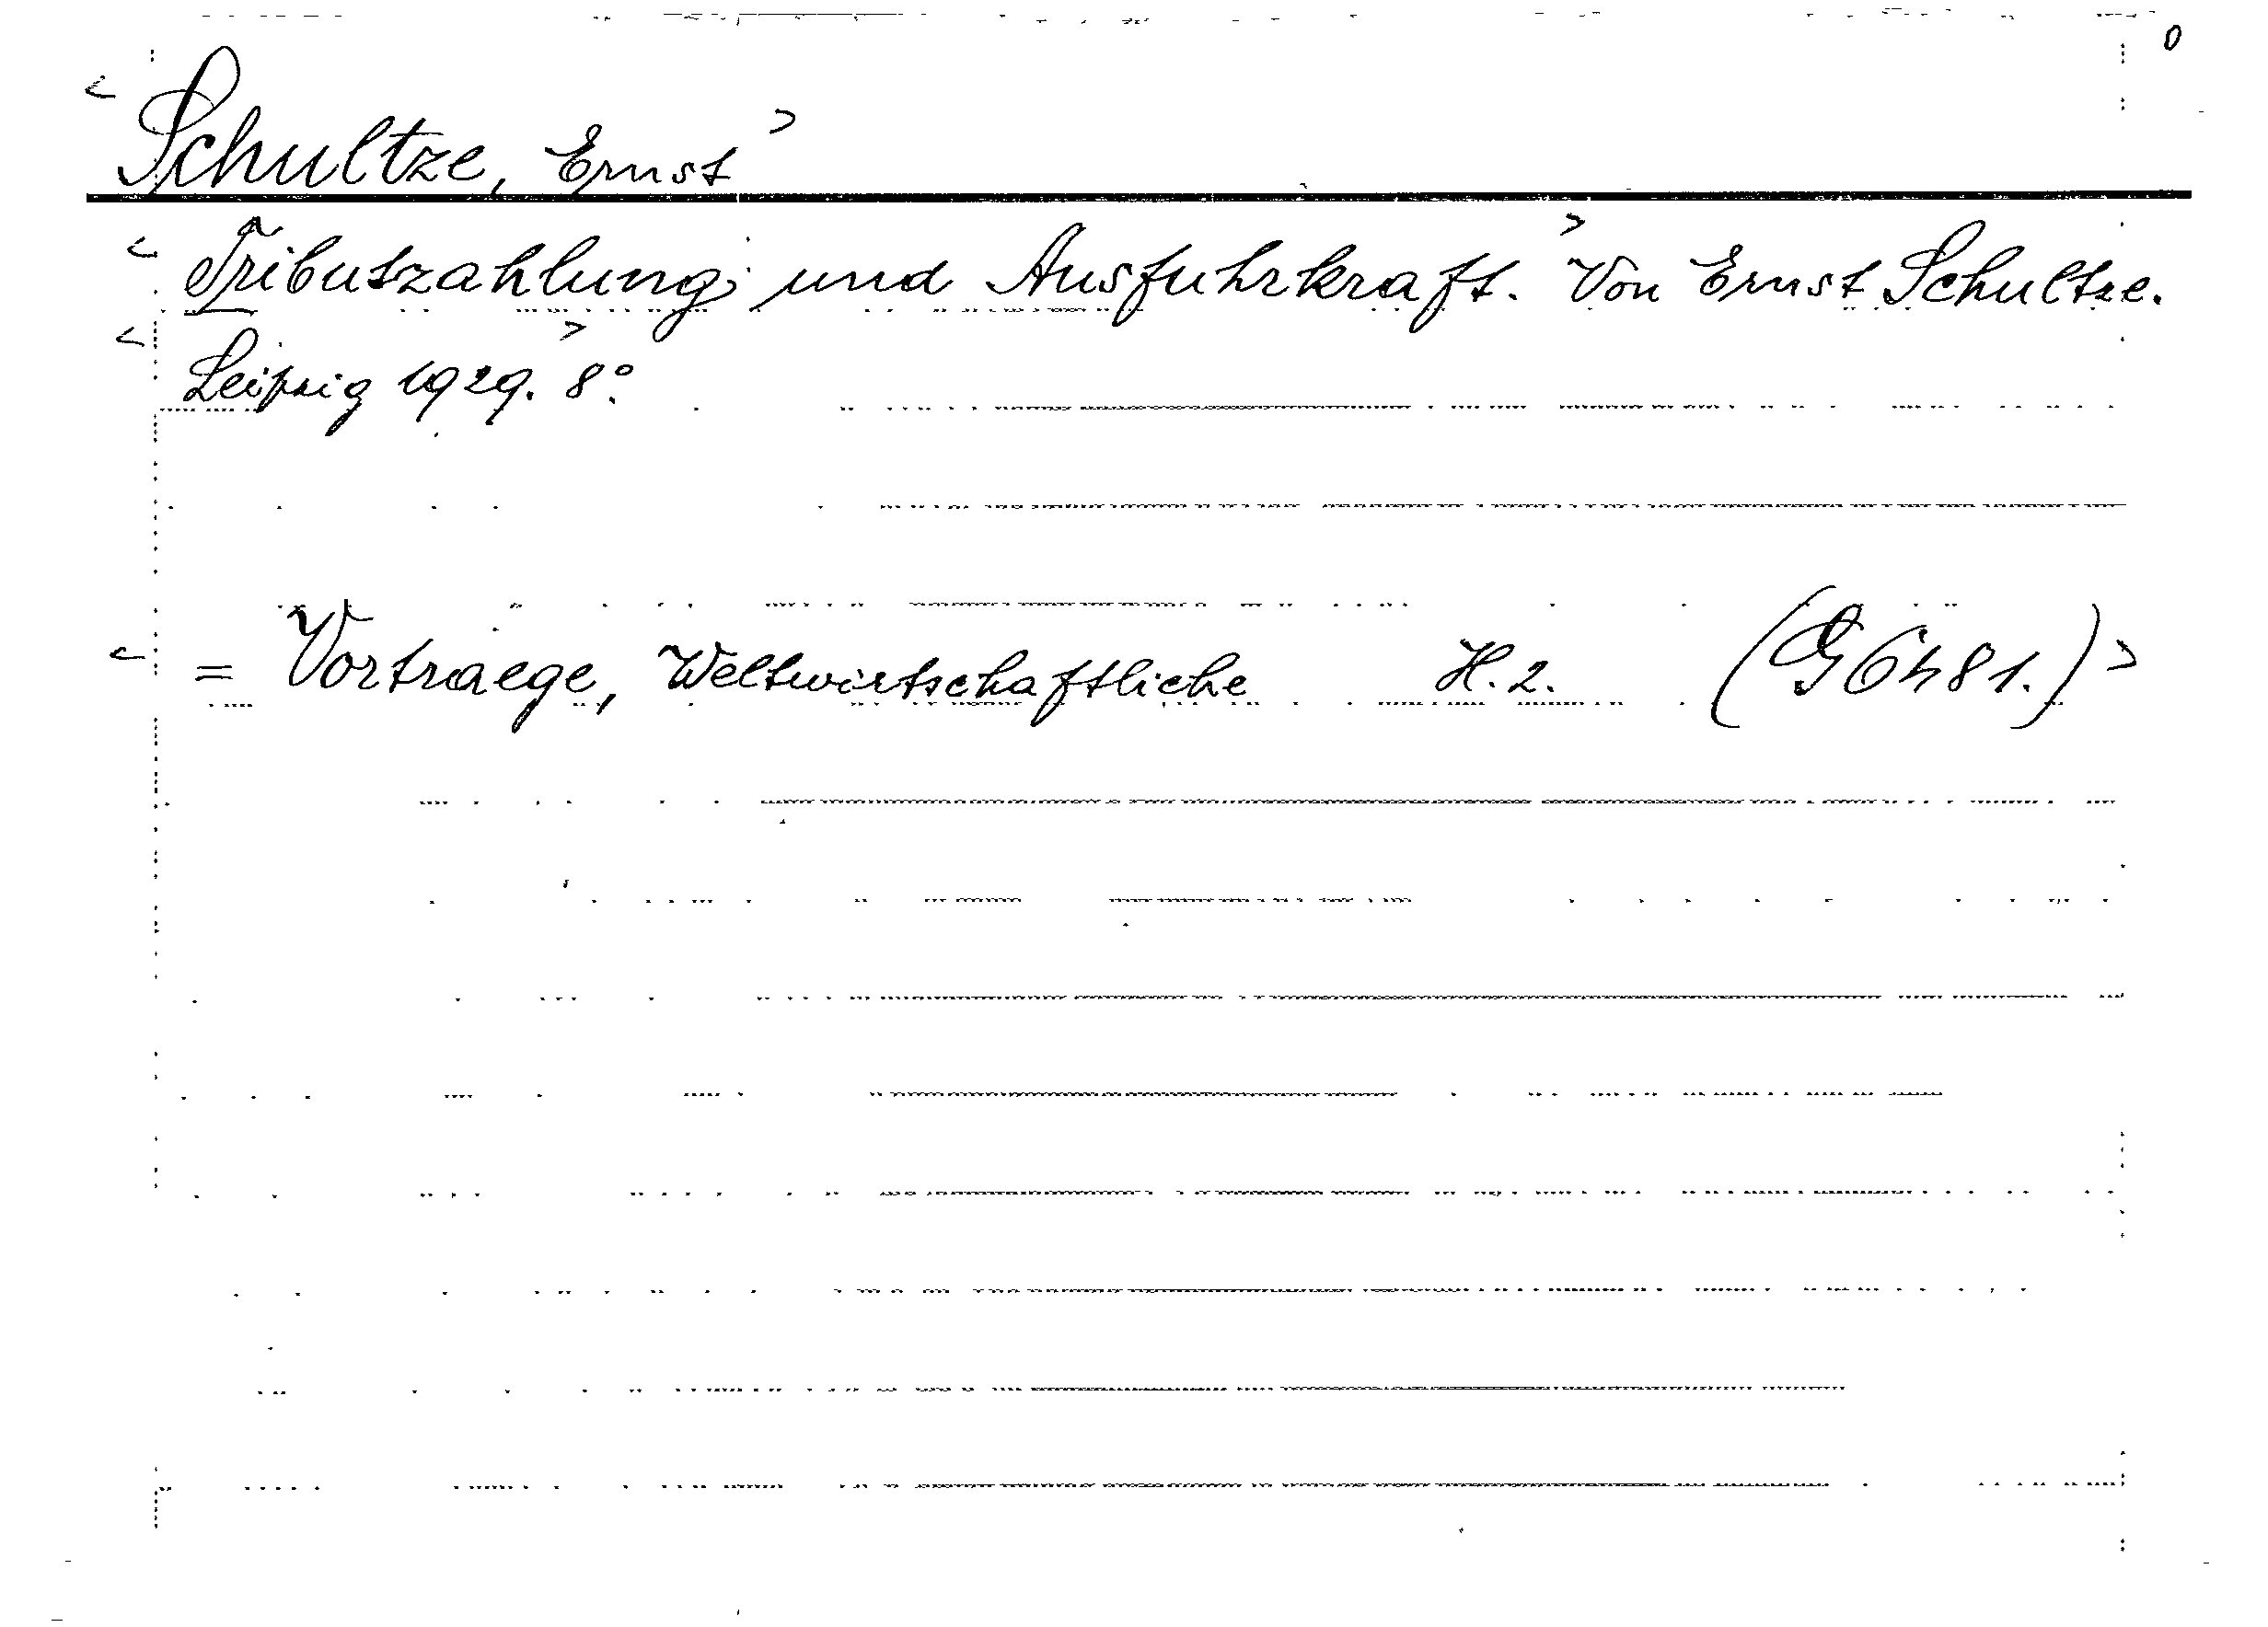 0
< Schultze, Ernst >
< Tributzahlung und Ausfuhrkraft. > Von Ernst Schultze.
< Leipzig 1929. > 8°.
< = Vortraege, Weltwirtschaftliche H. 2. (G 6481.) >